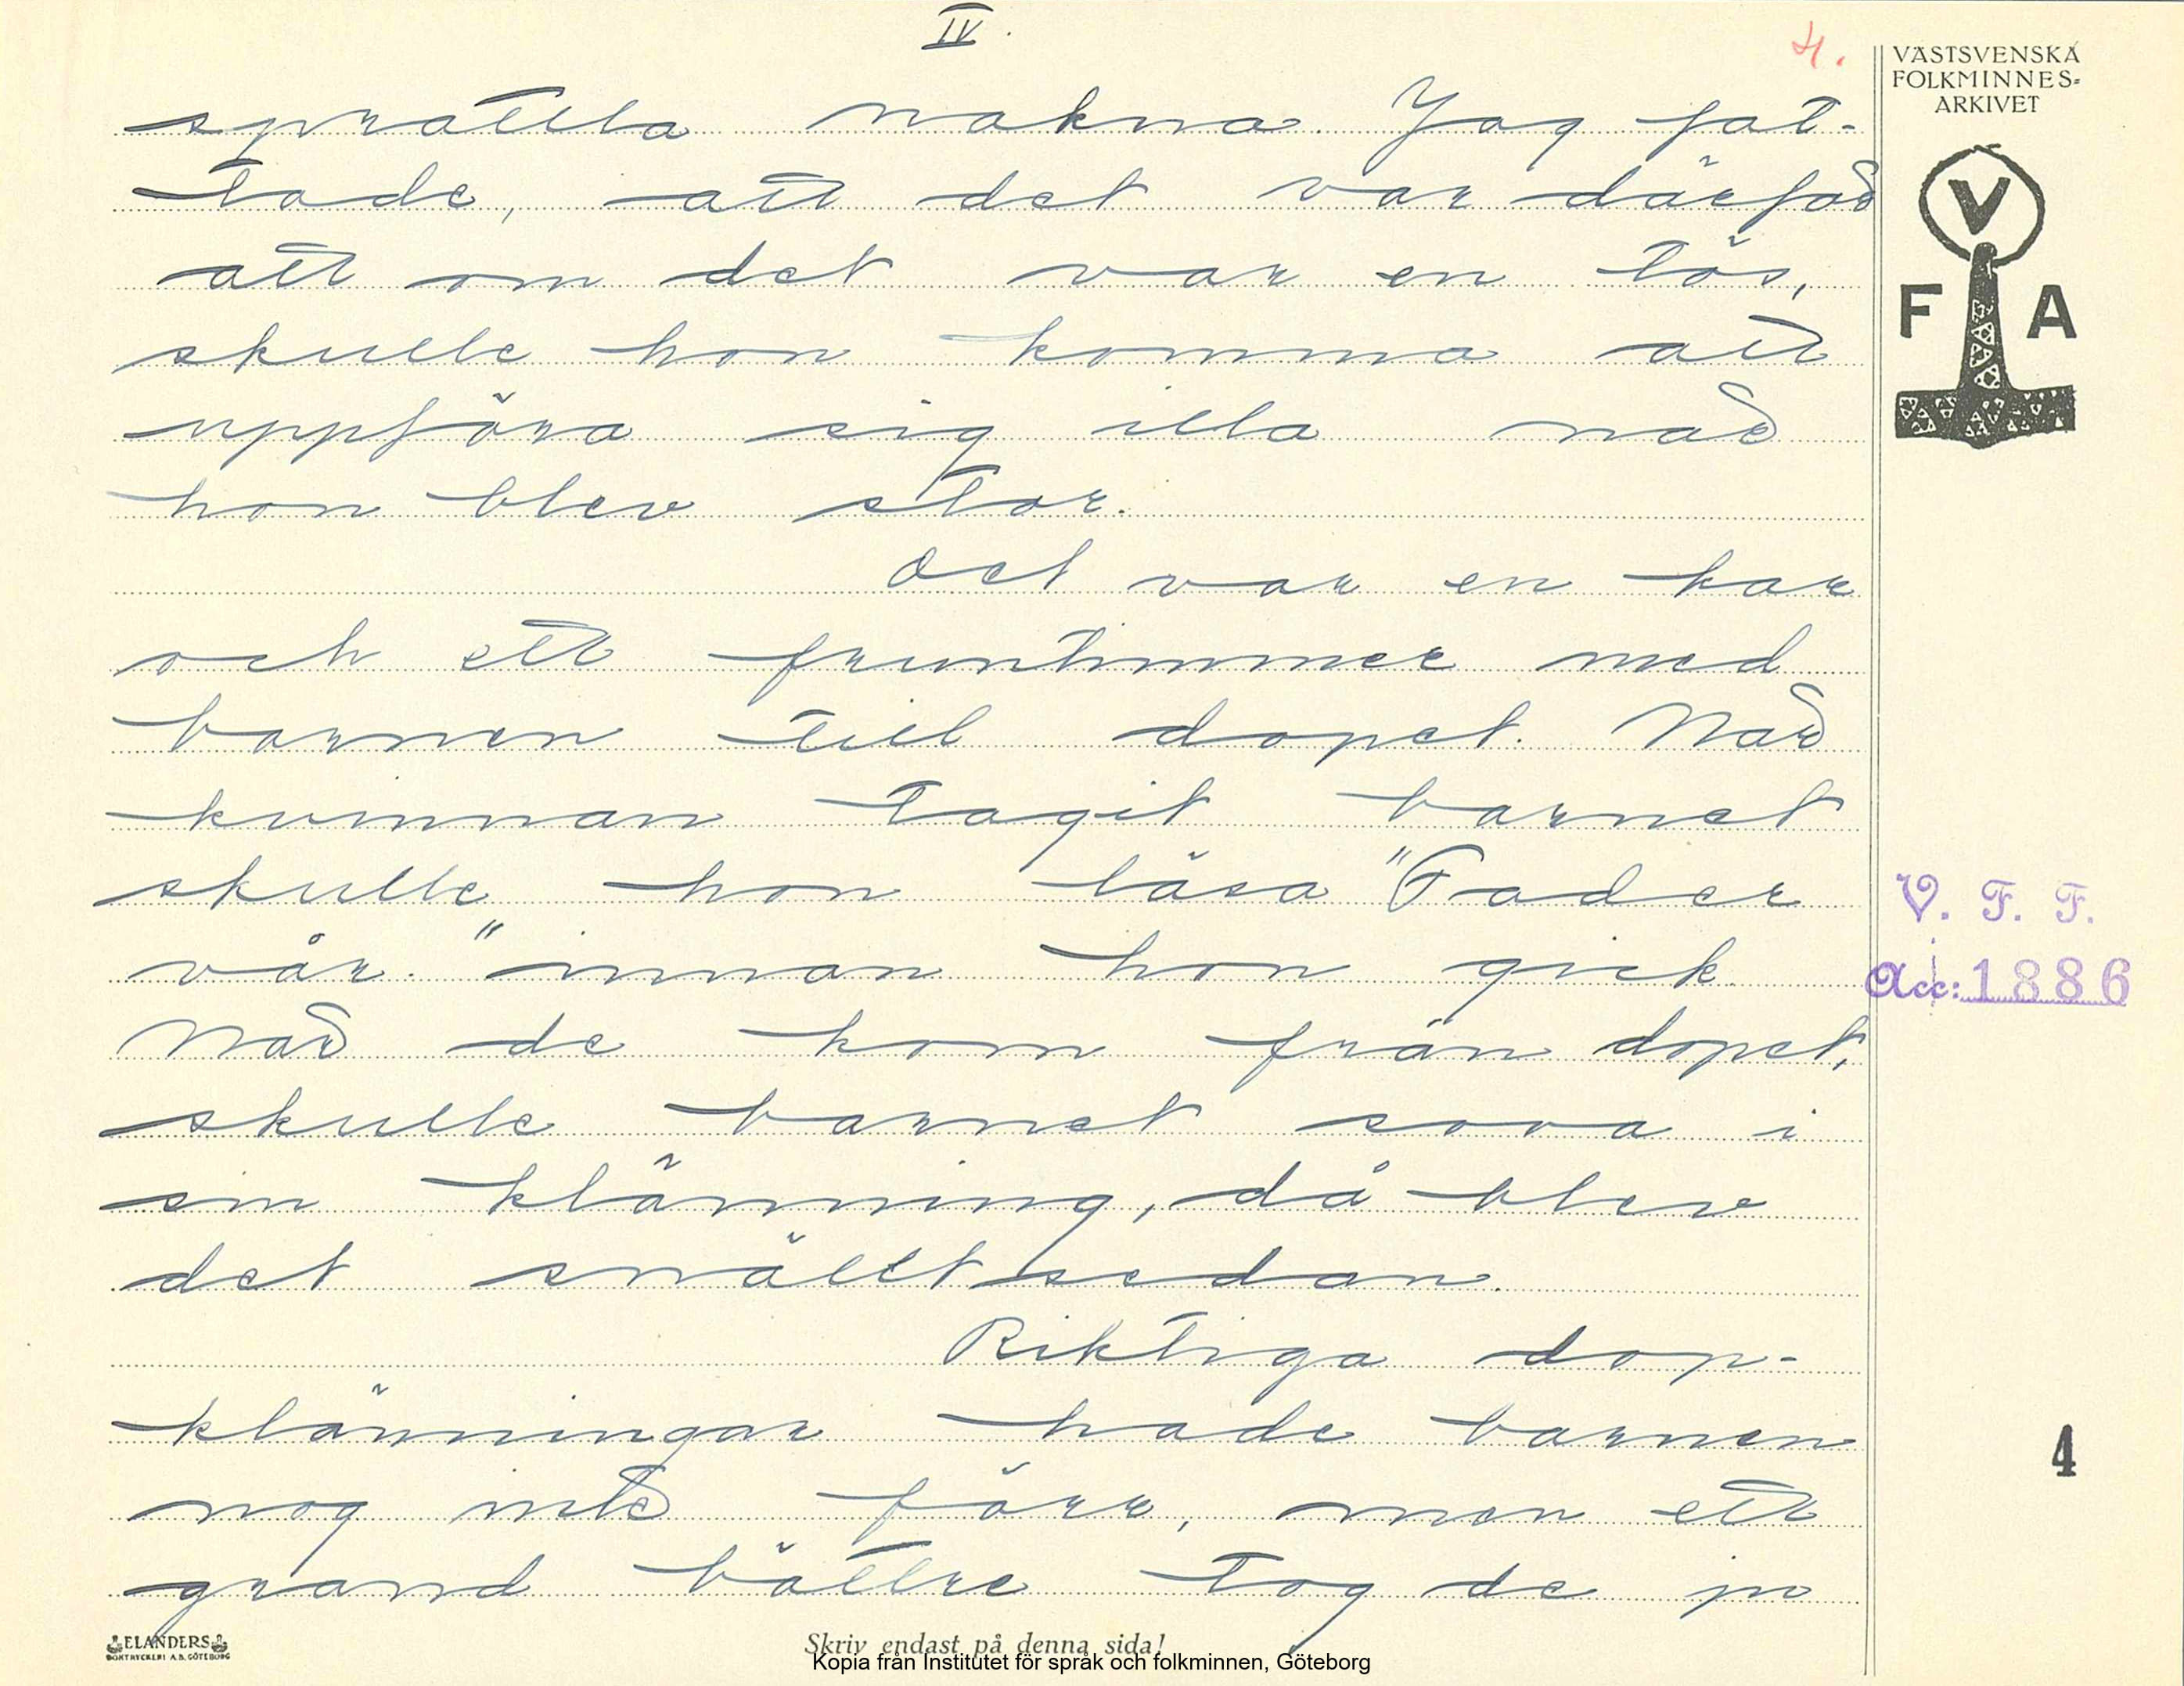 IV.
4.
VÄSTSVENSKA
FOLKMINNES=
ARKIVET
V
F A
sprattla nakna. Jag fat-
tade, att det var därför
att om det var en tös,
skulle hon komma att
uppföra sig illa når
hon blev stor.
Det var en kar
och ett fruntimmer med
barnen till dopet. När
kvinnan tagit barnet
skulle hon läsa "Fader
vår." innan hon gick.
När de kom från dopet,
skulle barnet sova i
sin klänning, då blev
det snällt sedan.
Riktiga dop-
klänningar hade barnen
nog inte förr, men ett
grand bättre tog de jo
V. F. F.
Acc: 1886
4
ELANDERS
BOKTRYCKERI A.B. GÖTEBORG
Skriv endast på denna sida!
Kopia från Institutet för språk och folkminnen, Göteborg